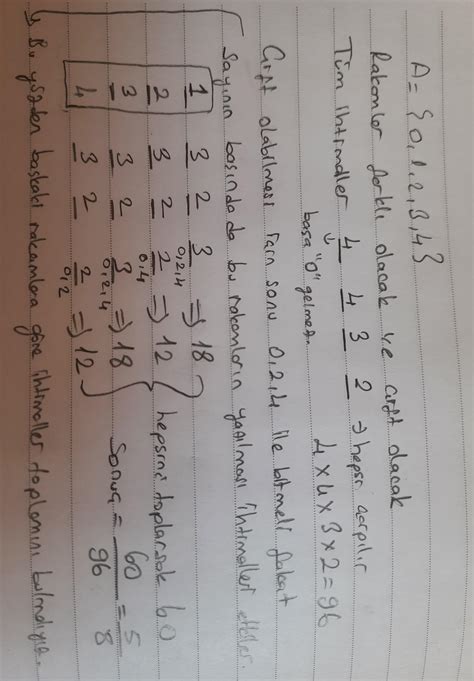 A = {0,1,2,3,4}
Rakamlar farklı olacak ve çift olacak
Tüm ihtimaller 4 4 3 2 => hepsi çarpılır
4x4x3x2=96
başa "0" gelmez.
Çift olabilmesi için sonu 0,2,4 ile bitmeli fakat
Sayının başında da bu rakamların yazılması ihtimalleri etkiler.
1 3 2 3 => 18
0,2,4
2 3 2 2 => 12
0,4
3 3 2 3 => 18
0,2,4
4 3 2 2 => 12
0,2
hepsini toplarsak 60
Sonuç = 60/96 = 5/8
Bu yüzden baştaki rakamlara göre ihtimaller toplamını bulmalıyız.